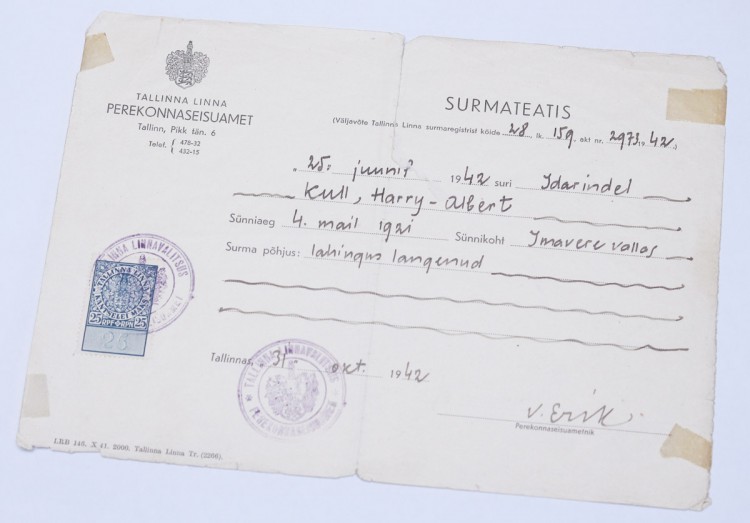 TALLINNA LINNA
PEREKONNASEISUAMET
Tallinn, Pikk tän. 6
Telef. { 478-32
432-15
SURMATEATIS
(Väljavõte Tallinna Linna surmaregistrist köide 28, lk. 159, akt nr. 2973 1942.)
"25. juunil 1942 suri Idarindel
Kull, Harry-Albert
Sünniaeg 4. mail 1921 Sünnikoht Imavere vallas
Surma põhjus: lahingus langenud
LINNAVALITSUS
TALLINNA LINNA
KANTSELEI MAKS
25 RPF 25
Tallinnas, 31. okt. 1942.
TALLINNA LINNAVALITSUS
V. Erik
Perekonnaseisuametnik
LRB 146. X 41. 2000. Tallinna Linna Tr. (2206).